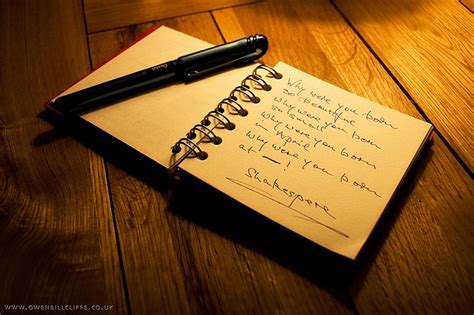 Why were you born
so beautiful
Why were you born
so small
Why were you born
Why were you born
at — !
Shakespere
WWW.OWENBILLCLIFFE.CO.UK